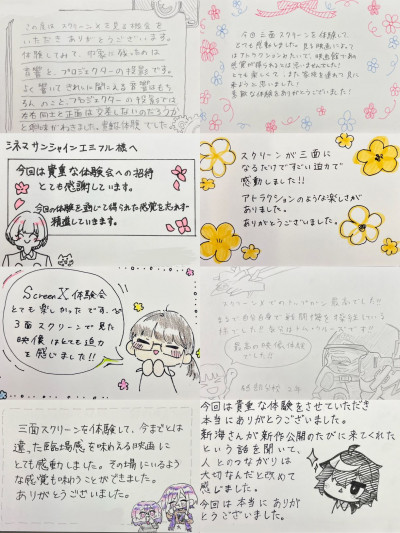 この度はスクリーンXを見る機会を
いただきありがとうございます。
体験してみて、印象に残ったのは
音響と、プロジェクターの投影です。
よく響いてきれいに聞こえる音響はもち
ろんのこと、プロジェクターの投影では
左右同士と正面は交差しないのだろうか
と興味がわきました。貴重な体験でした。
今回三面スクリーンを体験して、
とても感動しました。見る映画によって
はアトラクションみたいで、映画館であ
とても楽しくて、また家族を連れて見に
来ようと思いました!
貴重な体験をありがとうございました。
シネマサンシャインエミフル様へ
今回は貴重な体験会への招待
とても感謝しています。
今回の体験を通じて得られた感覚を忘れず
精進していきます。
スクリーンが三面に
なるだけですごい迫力で
感動しました!!
アトラクションのような楽しさが
ありました。
ありがとうございました。
ScreenX体験会
とても楽しかったです。
3面スクリーンで見た
映像はとても迫力
を感じました!!
最高の映像体験
でした
三面スクリーンを体験して、今までとは
違った臨場感を味わえる映画に
とても感動しました。その場にいるよう
な感覚も味わうことができました。
ありがとうございました。
今回は貴重な体験をさせていただき
本当にありがとうございました。
新海さんが新作公開のたびに来てくれた
という話を聞いて、
人とのつながりは
大切なんだと改めて
感じました。
今回は本当にありが
とうございました。